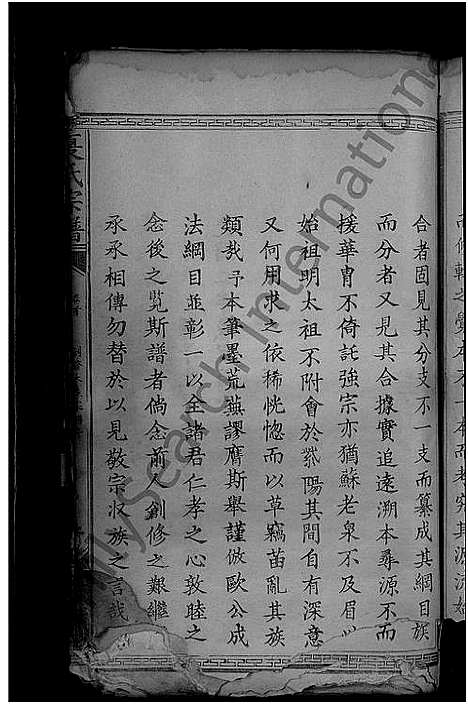 合者固見其分支不一支而纂成其綱目族
而分者又見其合據實追遠溯本尋源不而
援華冑不倚託強宗亦猶蘇老泉不及眉
始祖明太祖不附會於紫陽其間自有深意
又何用求之依稀恍惚而以草竊苗亂其族
類哉予本筆墨荒蕪謬膺斯舉謹倣歐公成
法綱目並彰一以全諸君仁孝之心敦睦之
念後之覽斯譜者倘念前人創修之艱繼
承承相傳勿替於以見敬宗收族之言哉
氏宗譜
MySearch International